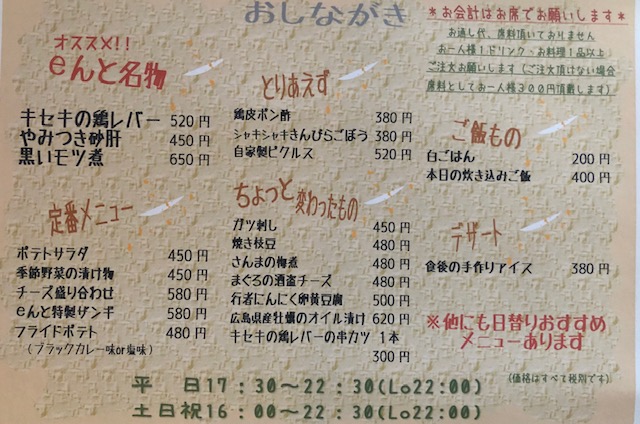 おしながき
＊お会計はお席でお願いします＊
お通し代、席料頂いておりません
お一人様１ドリンク・お料理１品以上
ご注文お願いします（ご注文頂けない場合
席料としてお一人様３００円頂戴します）
オススメ!!
eんと名物
キセキの鶏レバー 520円
やみつき砂肝 450円
黒いモツ煮 650円
とりあえず
鶏皮ポン酢 380円
シャキシャキきんぴらごぼう 380円
自家製ピクルス 520円
ご飯もの
白ごはん 200円
本日の炊き込みご飯 400円
定番メニュー
ポテトサラダ 450円
季節野菜の漬け物 450円
チーズ盛り合わせ 580円
eんと特製ザンギ 580円
フライドポテト 480円
（ブラックカレー味or塩味）
ちょっと変わったもの
ガツ刺し 450円
焼き枝豆 480円
さんまの梅煮 480円
まぐろの酒盗チーズ 480円
行者にんにく卵黄豆腐 500円
広島県産牡蠣のオイル漬け 620円
キセキの鶏レバーの串カツ 1本
300円
デザート
食後の手作りアイス 380円
※他にも日替りおすすめ
メニューあります
（価格はすべて税別です）
平　日17：30～22：30(Lo22:00)
土日祝16：00～22：30(Lo22:00)